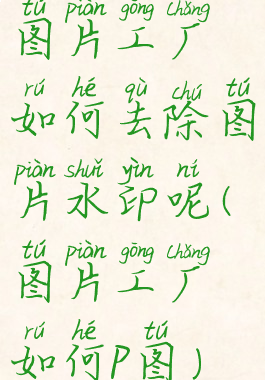 tú piàn gōng chǎng
图片工厂
rú hé qù chú tú
如何去除图
piàn shuǐ yìn ní
片水印呢(
tú piàn gōng chǎng
图片工厂
rú hé tú
如何P图)